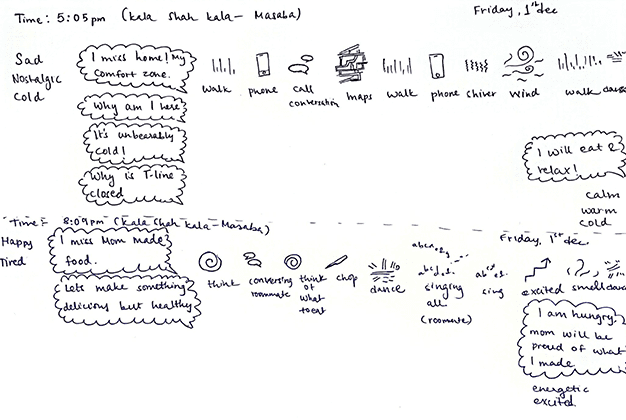 Time: 5:05pm (kala shah kala - Masaba) Friday, 1st dec
Sad
Nostalgic
Cold
I miss home! My
comfort zone.
Why am I here
It's unbearably
cold!
Why is T-line
closed
walk phone call
conversation maps walk phone shiver wind walk dance
I will eat &
relax!
calm
warm
cold
Time: 8:09pm (kala shah kala - Masaba) Friday, 1st dec
Happy
Tired
I miss Mom made
food.
Lets make something
delicious but healthy
think conversing
roommate think
of
what
to eat chop dance
singing
all
(roomate) sing excited smell dance
I am hungry,
mom will be
proud of what
I made
energetic
excited